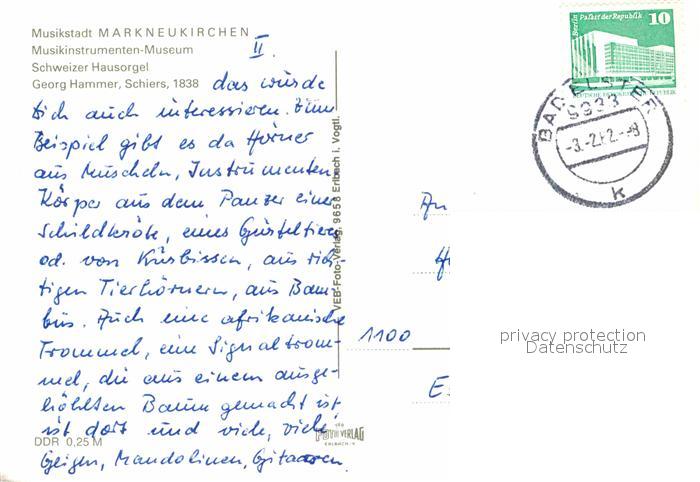 Musikstadt MARKNEUKIRCHEN
Musikinstrumenten-Museum
Schweizer Hausorgel
Georg Hammer, Schiers, 1838
II.
das würde
dich auch interessieren. Zum
Beispiel gibt es da Hörner
aus Muscheln, Instrumenten
Körper aus dem Panzer einer
Schildkröte, eines Gürteltieres
od. von Kürbissen, aus rich-
tigen Tierhörnern, aus Bam-
bus. Auch eine afrikanische
Trommel, eine Signaltrom-
mel, die aus einem ausge-
höhlten Baum gemacht ist,
ist dort und viele, viele
Geigen, Mandolinen, Gitarren.
DDR 0,25 M
VEB-Foto-Verlag, 9658 Erlbach i. Vogtl.
VEB
FOTO VERLAG
ERLBACH/V
Berlin Palast der Republik
10
DEUTSCHE DEMOKRATISCHE REPUBLIK
BAD ELSTER
9933
-3.-2.82.--8
k
An
1100
privacy protection
Datenschutz